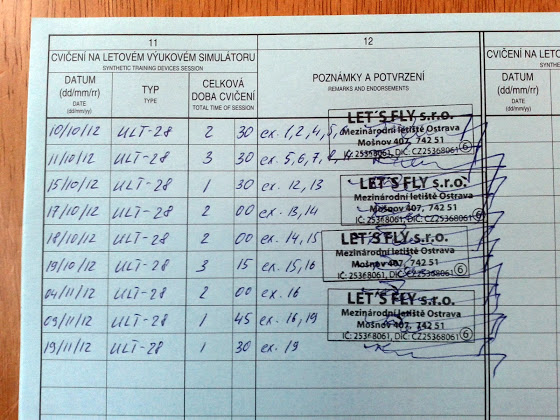 11 12
CVIČENÍ NA LETOVÉM VÝUKOVÉM SIMULÁTORU
SYNTHETIC TRAINING DEVICES SESSION
DATUM (dd/mm/rr) DATE (dd/mm/yy)
TYP TYPE
CELKOVÁ DOBA CVIČENÍ TOTAL TIME OF SESSION
POZNÁMKY A POTVRZENÍ
REMARKS AND ENDORSEMENTS
CVIČENÍ NA LETO
SYNTHE
DATUM (dd/mm/rr) DATE (dd/mm/yy)
10/10/12 ULT-28 2 30 ex. 1, 2, 4, 5,
11/10/12 ULT-28 3 30 ex. 5, 6, 7,
15/10/12 ULT-28 1 30 ex. 12, 13
17/10/12 ULT-28 2 00 ex. 13, 14
18/10/12 ULT-28 2 00 ex. 14, 15
19/10/12 ULT-28 3 15 ex. 15, 16
04/11/12 ULT-28 2 00 ex. 16
09/11/12 ULT-28 1 45 ex. 16, 19
19/11/12 ULT-28 1 30 ex. 19
LET'S FLY s.r.o.
Mezinárodní letiště Ostrava
Mošnov 407, 742 51
IČ: 25368061, DIČ: CZ25368061 6
LET'S FLY s.r.o.
Mezinárodní letiště Ostrava
Mošnov 407, 742 51
IČ: 25368061, DIČ: CZ25368061 6
LET'S FLY s.r.o.
Mezinárodní letiště Ostrava
Mošnov 407, 742 51
IČ: 25368061, DIČ: CZ25368061 6
LET'S FLY s.r.o.
Mezinárodní letiště Ostrava
Mošnov 407, 742 51
IČ: 25368061, DIČ: CZ25368061 6